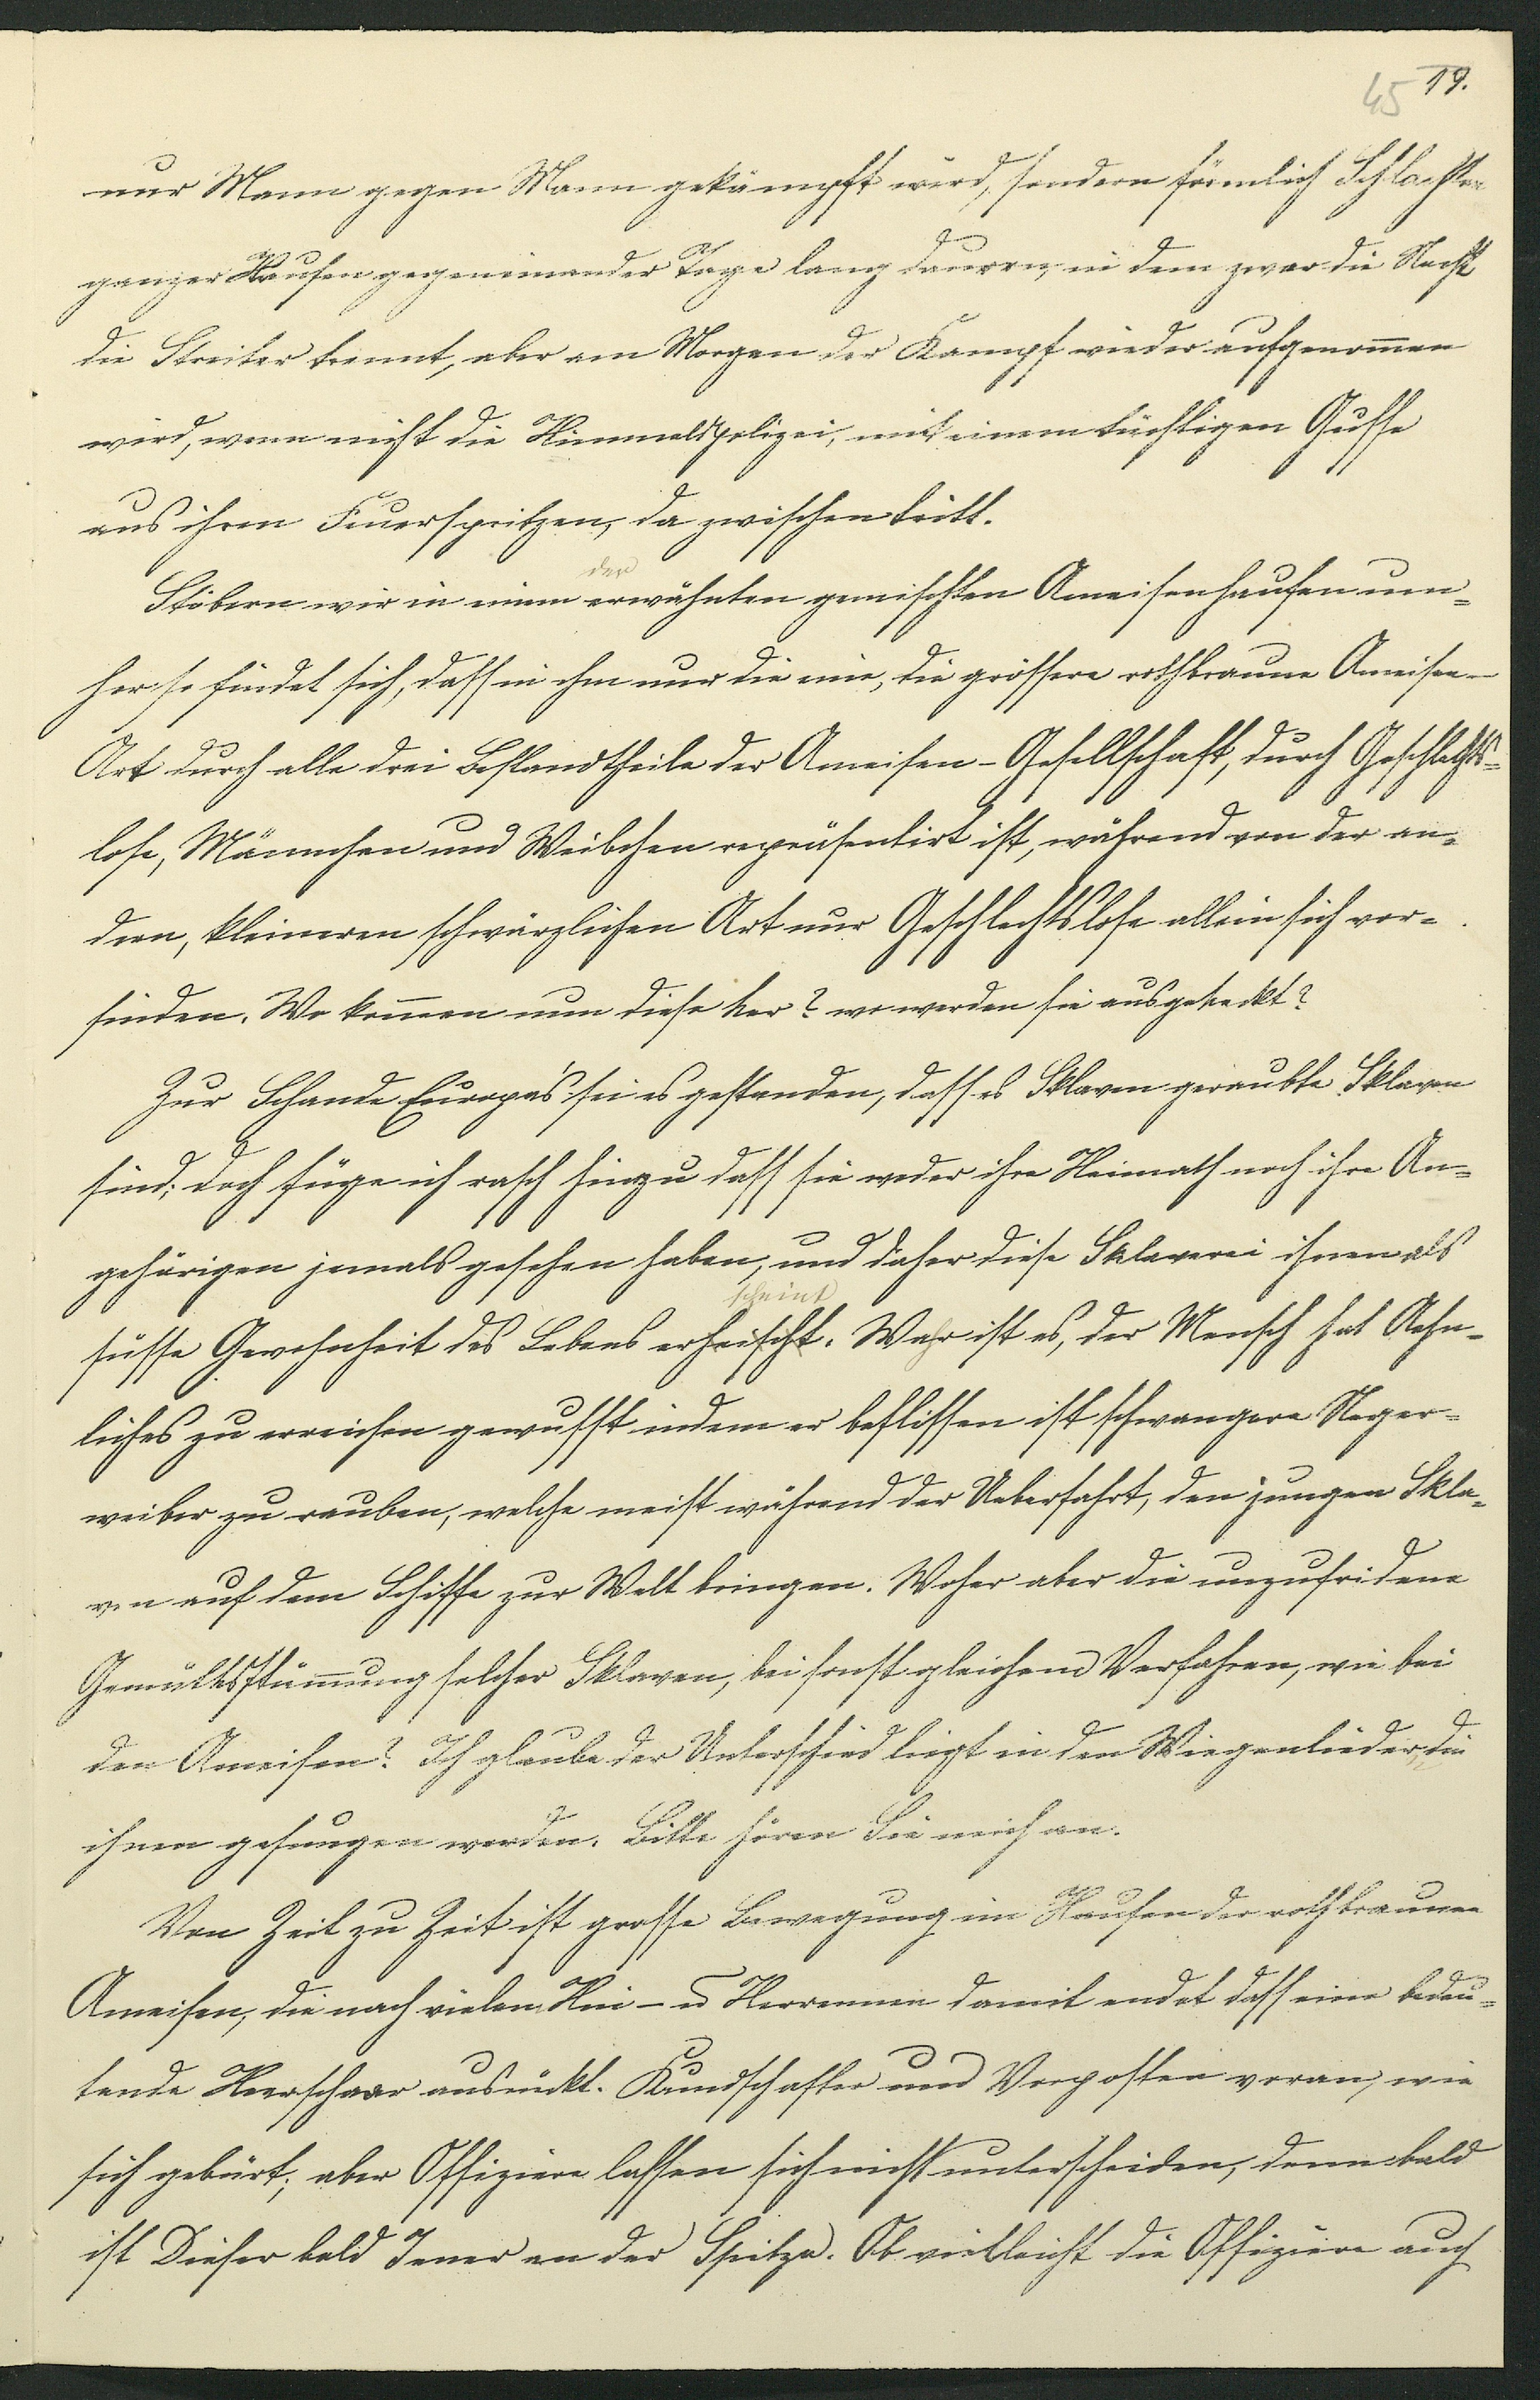 45 19.
nur Mann gegen Mann gekämpft wird, sondern förmlich Schlachten
ganzer Haufen gegeneinander Tage lang dauern, in dem zwar die Nacht
die Streiter trennt, aber am Morgen der Kampf wieder aufgenom̄en
wird, wenn nicht die Himmelspolizei, mit einem tüchtigen Gusse
aus ihren Feuerspritzen, da zwischen tritt.
der
Stöbern wir in einem erwähnten gemischten Ameisenhaufen um=
her so findet sich, dass in ihm nur die eine, die grössere rothbraune Ameisen-
Art durch alle drei Bestandtheile der Ameisen-Gesellschaft, durch Geschlechts=
lose, Männchen und Weibchen repräsentirt ist, während von der an=
dern, kleineren schwärzlichen Art nur Geschlechtslose allein sich vor=
finden. Wo kom̄en nun diese her? wo werden sie ausgeheckt?
Zur Schande Europa's sei es gestanden, dass es Sklaven geraubte Sklaven
sind; doch füge ich rasch hinzu dass sie weder ihre Heimath noch ihre An=
gehörigen jemals gesehen haben, und daher diese Sklaverei ihnen als
scheint
süsse Gewohnheit des Lebens erheischt. Wahr ist es, der Mensch hat Aehn=
liches zu erreichen gewusst indem er beflissen ist schwangere Neger=
weiber zu rauben, welche meist während der Ueberfahrt, den jungen Skla=
ven auf dem Schiffe zur Welt bringen. Woher aber die unzufridene
Gemüthsstim̄ung solcher Sklaven, bei sonst gleichem Verfahren, wie bei
den Ameisen? Ich glaube der Unterschied liegt in den Wiegenlieder, die
ihnen gesungen werden. Bitte hören Sie mich an.
Von Zeit zu Zeit ist grosse Bewegung im Haufen der rothbraunen
Ameisen, die nach vielen Hin- u Herrennen damit endet dass eine bedeu=
tende Heerschaar ausrückt. Kundschafter und Vorposten voran, wie
sich gebürt; aber Offiziere lassen sich nicht unterscheiden, denn bald
ist Dieser bald Jener an der Spitze. Ob vielleicht die Offiziere auch